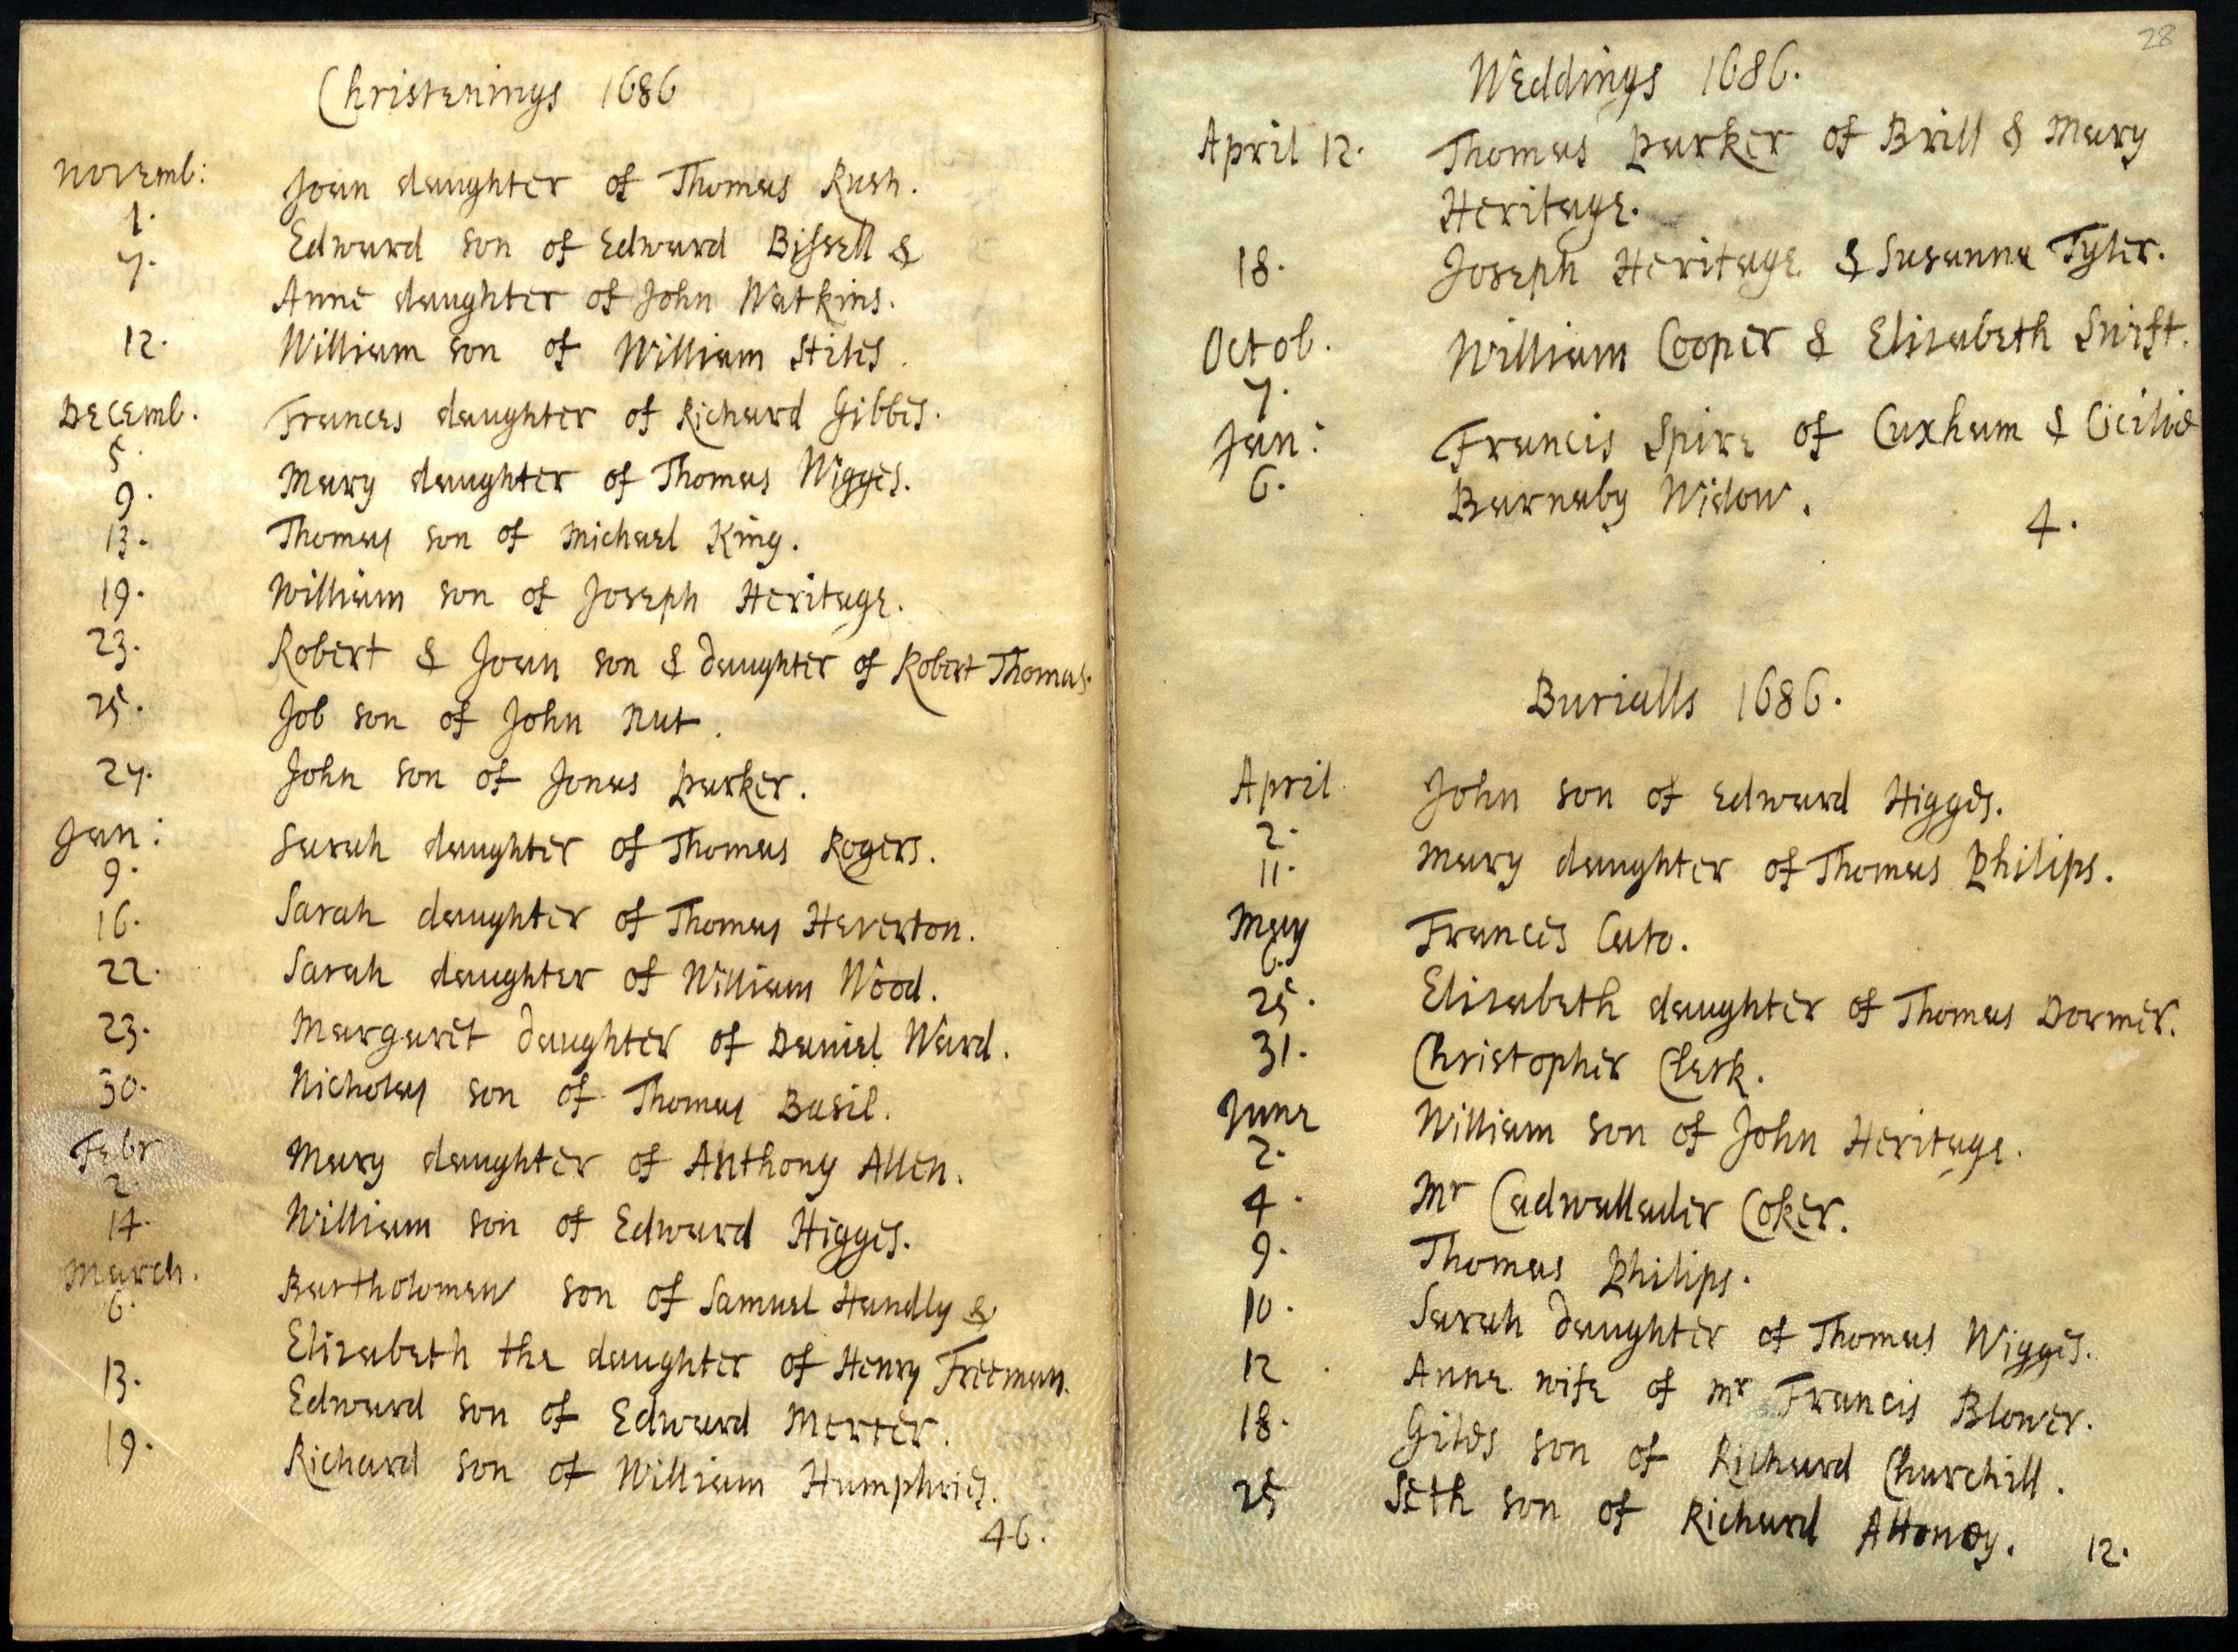 Christenings 1686
Novemb: Joan daughter of Thomas Rush.
1.
7. Edward son of Edward Bissell &
Anne daughter of John Watkins.
12. William son of William Stiles.
Decemb. Frances daughter of Richard Gibbes.
5.
9. Mary daughter of Thomas Wigges.
13. Thomas son of Michael King.
19. William son of Joseph Heritage.
23. Robert & Joan son & daughter of Robert Thomas.
25. Job son of John Nut.
27. John son of Jonas Parker.
Jan: Sarah daughter of Thomas Rogers.
9.
16. Sarah daughter of Thomas Heverton.
22. Sarah daughter of William Wood.
23. Margaret daughter of Daniel Ward.
30. Nicholas son of Thomas Basil.
Febr Mary daughter of Anthony Allen.
2.
14. William son of Edward Higges.
March. Bartholomew son of Samuel Handly &
6.
Elizabeth the daughter of Henry Freeman.
13. Edward son of Edward Merter.
19. Richard son of William Humphries.
46.
28
Weddings 1686.
April 12. Thomas Parker of Brill & Mary
Heritage.
18. Joseph Heritage & Susanna Tyler.
Octob. William Cooper & Elizabeth Swift.
7.
Jan: Francis Spire of Cuxham & Cicilie
6. Barnaby Widow.
4.
Burialls 1686.
April John son of Edward Higges.
2.
11. Mary daughter of Thomas Philips.
May Francis Cato.
6.
25. Elizabeth daughter of Thomas Dormer.
31. Christopher Clerk.
June William son of John Heritage.
2.
4. Mr Cadwallader Coker.
9. Thomas Philips.
10. Sarah daughter of Thomas Wigges.
12. Anne wife of Mr Francis Blower.
18. Giles son of Richard Churchill.
25 Seth son of Richard Attoney. 12.